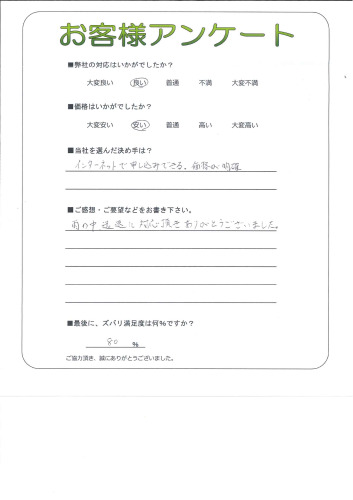 お客様アンケート
■弊社の対応はいかがでしたか？
大変良い 良い 普通 不満 大変不満
■価格はいかがでしたか？
大変安い 安い 普通 高い 大変高い
■当社を選んだ決め手は？
インターネットで申し込みできる、価格が明確
■ご感想・ご要望などをお書き下さい。
雨の中迅速に対応頂きありがとうございました。
■最後に、ズバリ満足度は何%ですか？
80 %
ご協力頂き、誠にありがとうございました。